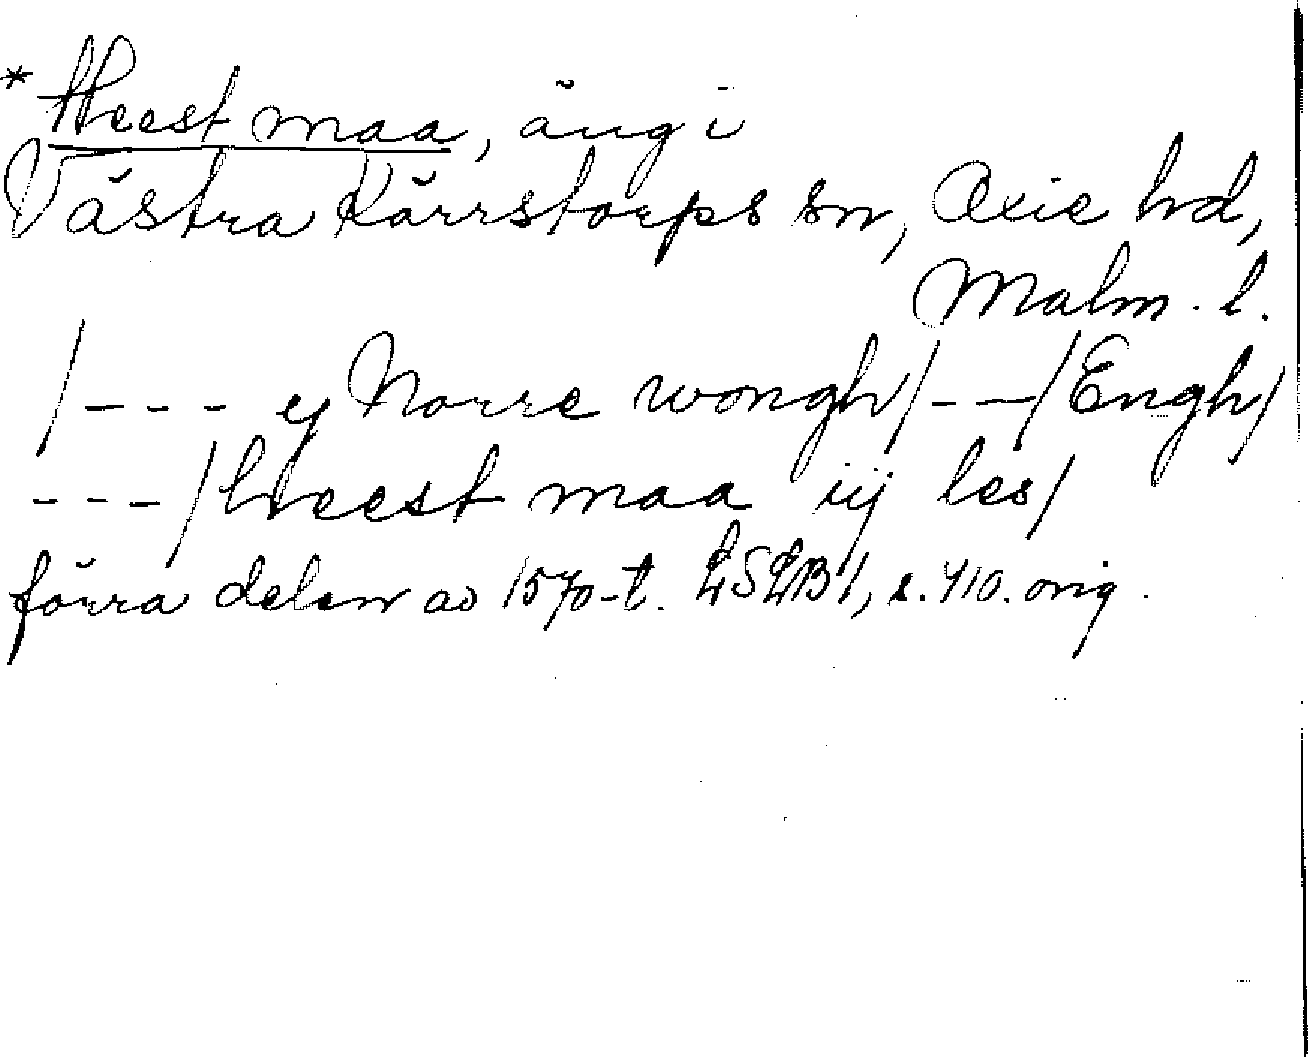 * Heest maa, äng i
Västra Kärrstorps sn, Oxie hd,
Malm. l.
/--- y Norre wongh/--/Engh/
---/heest maa iij les/
förra delen av 1570-t. LSLB 1, s. 410. orig.